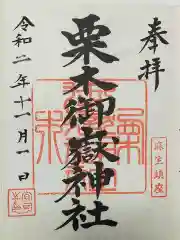 奉拝
栗木御嶽神社
麻生鎮座
令和二年十一月一日